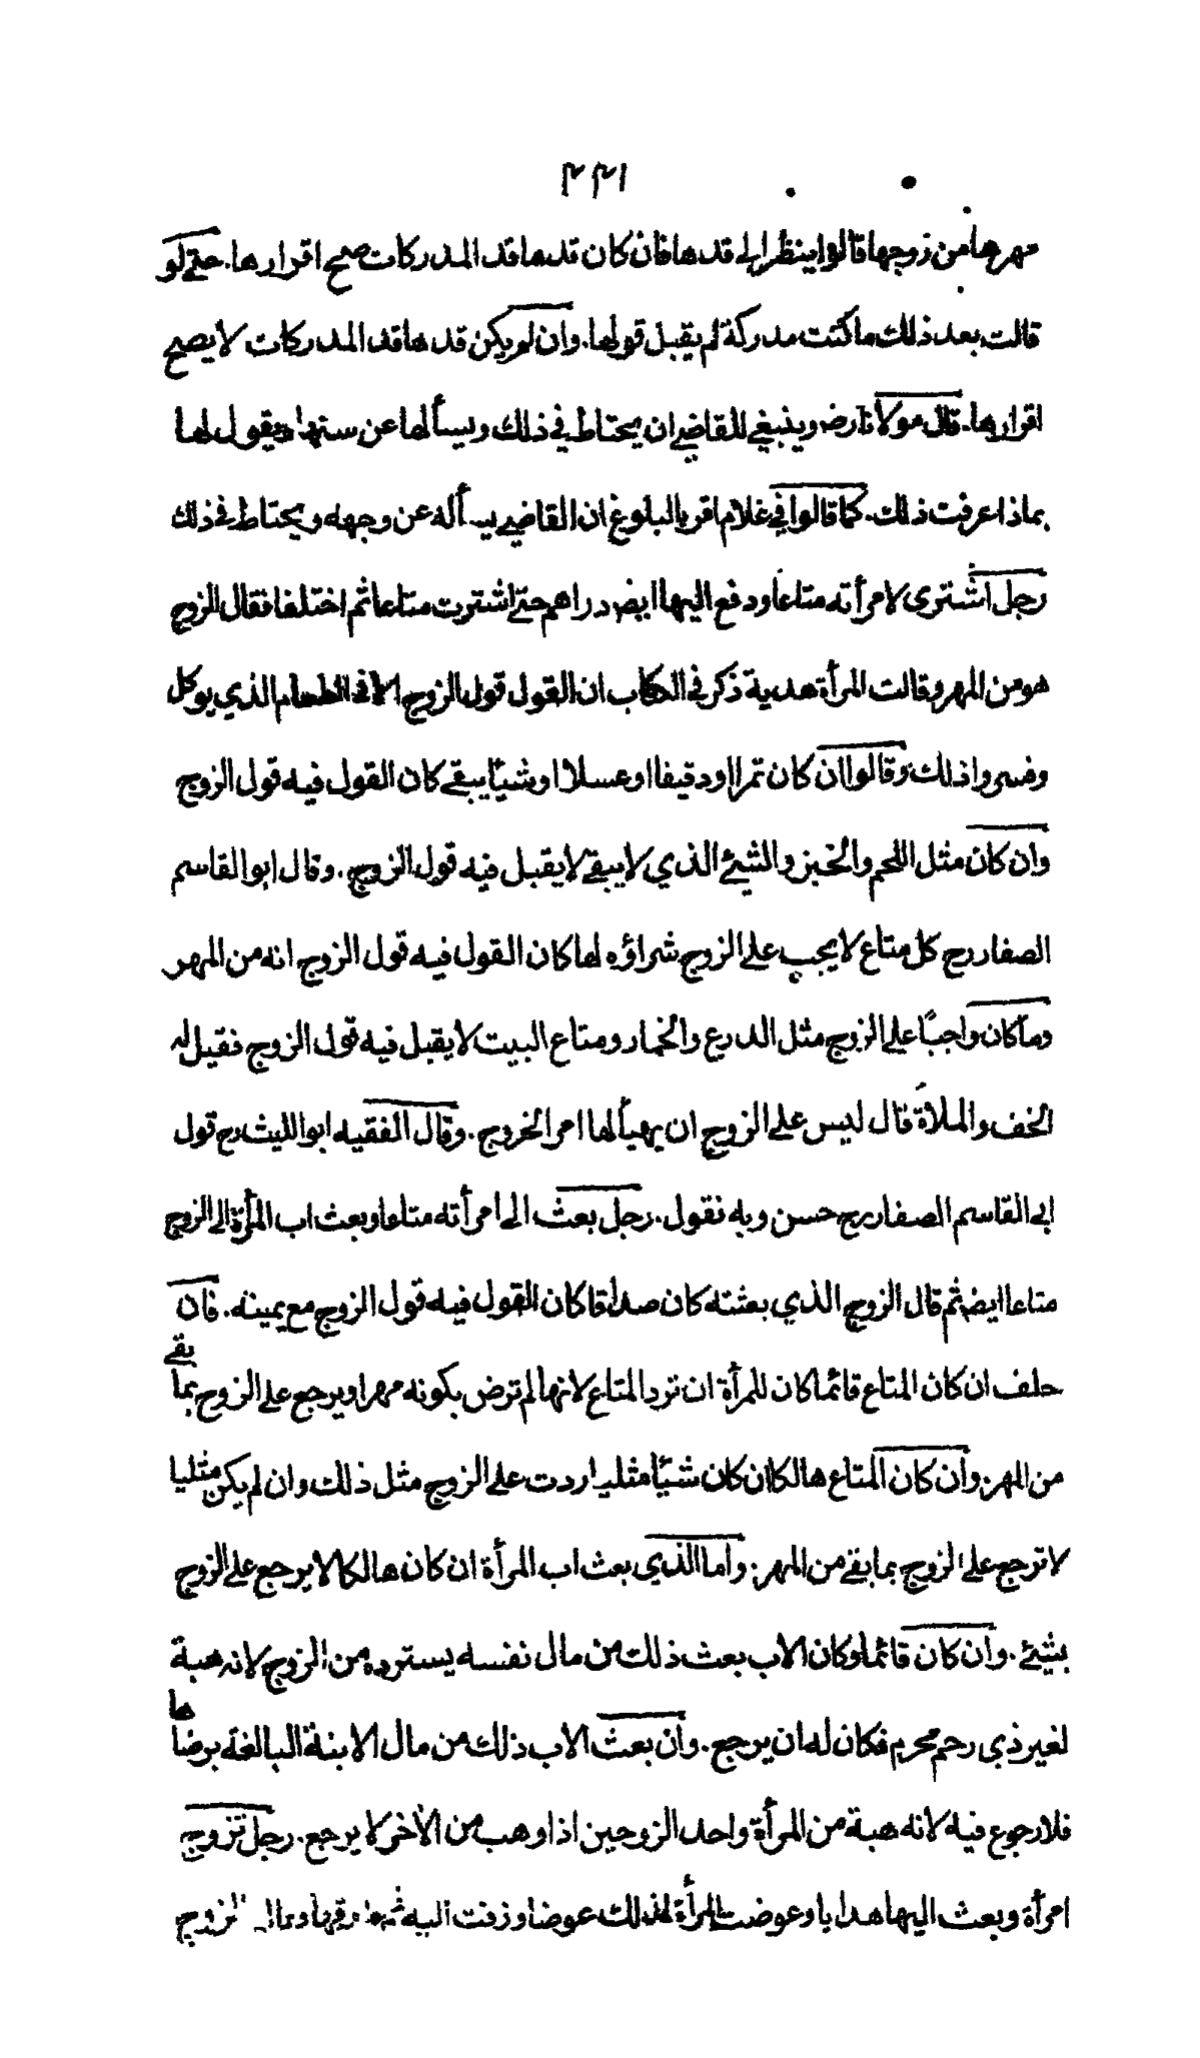 ٤٤١
مهرها من زوجها قالوا ينظر الى قدها فان كان قدها قد المدركات صح اقرارها. حتى لو
قالت بعد ذلك ما كنت مدركة لم يقبل قولها. وان لم يكن قدها قد المدركات لا يصح
اقرارها. قال مولانا رضه وينبغي للقاضي ان يحتاط في ذلك ويسألها عن سنها ويقول لها
بماذا عرفت ذلك. كما قالوا في غلام اقر بالبلوغ ان القاضي يسأله عن وجهه ويحتاط في ذلك
رجل اشترى لامرأته متاعا ودفع اليها ايضه دراهم حتى اشترت متاعا ثم اختلفا فقال الزوج
هو من المهر وقالت المرأة هدية ذكر في الكتاب ان القول قول الزوج الا في الطعام الذي يوكل
وفسروا ذلك وقالوا ان كان تمرا او دقيقا او عسلا او شيئا يبقى كان القول فيه قول الزوج
وان كان مثل اللحم والخبز والشيئ الذي لا يبقى لا يقبل فيه قول الزوج. وقال ابو القاسم
الصفار رح كل متاع لا يجب على الزوج شراؤه لها كان القول فيه قول الزوج انه من المهر
وما كان واجبًا على الزوج مثل الدرع والخمار ومتاع البيت لا يقبل فيه قول الزوج فقيل له
الخف والملاة قال ليس على الزوج ان يهيأ لها امر الخروج. وقال الفقيه ابو الليث رح قول
ابى القاسم الصفار رح حسن وبه نقول. رجل بعث الى امرأته متاعا وبعث اب المرأة الى الزوج
متاعا ايضه ثم قال الزوج الذي بعثته كان صداقا كان القول فيه قول الزوج مع يمينه. فان
حلف ان كان المتاع قائما كان للمرأة ان ترد المتاع لانها لم ترض بكونه مهرا ويرجع على الزوج بما بقى
من المهر: وان كان المتاع هالكا ان كان شيئا مثليا ردت على الزوج مثل ذلك وان لم يكن مثليا
لا ترجع على الزوج بما بقى من المهر: واما الذي بعث اب المرأة ان كان هالكا لا يرجع على الزوج
بشيئ. وان كان قائما وكان الاب بعث ذلك من مال نفسه يسترده من الزوج لانه هبة
لغير ذي رحم محرم فكان له ان يرجع. وان بعث الاب ذلك من مال الابنة البالغة برضاها
فلا رجوع فيه لانه هبة من المرأة واحد الزوجين اذا وهب من الأخر لا يرجع. رجل تزوج
امرأة وبعث اليها هدايا وعوضت المرأة لذلك عوضا وزفت اليه ثم فارقها وقال الزوج